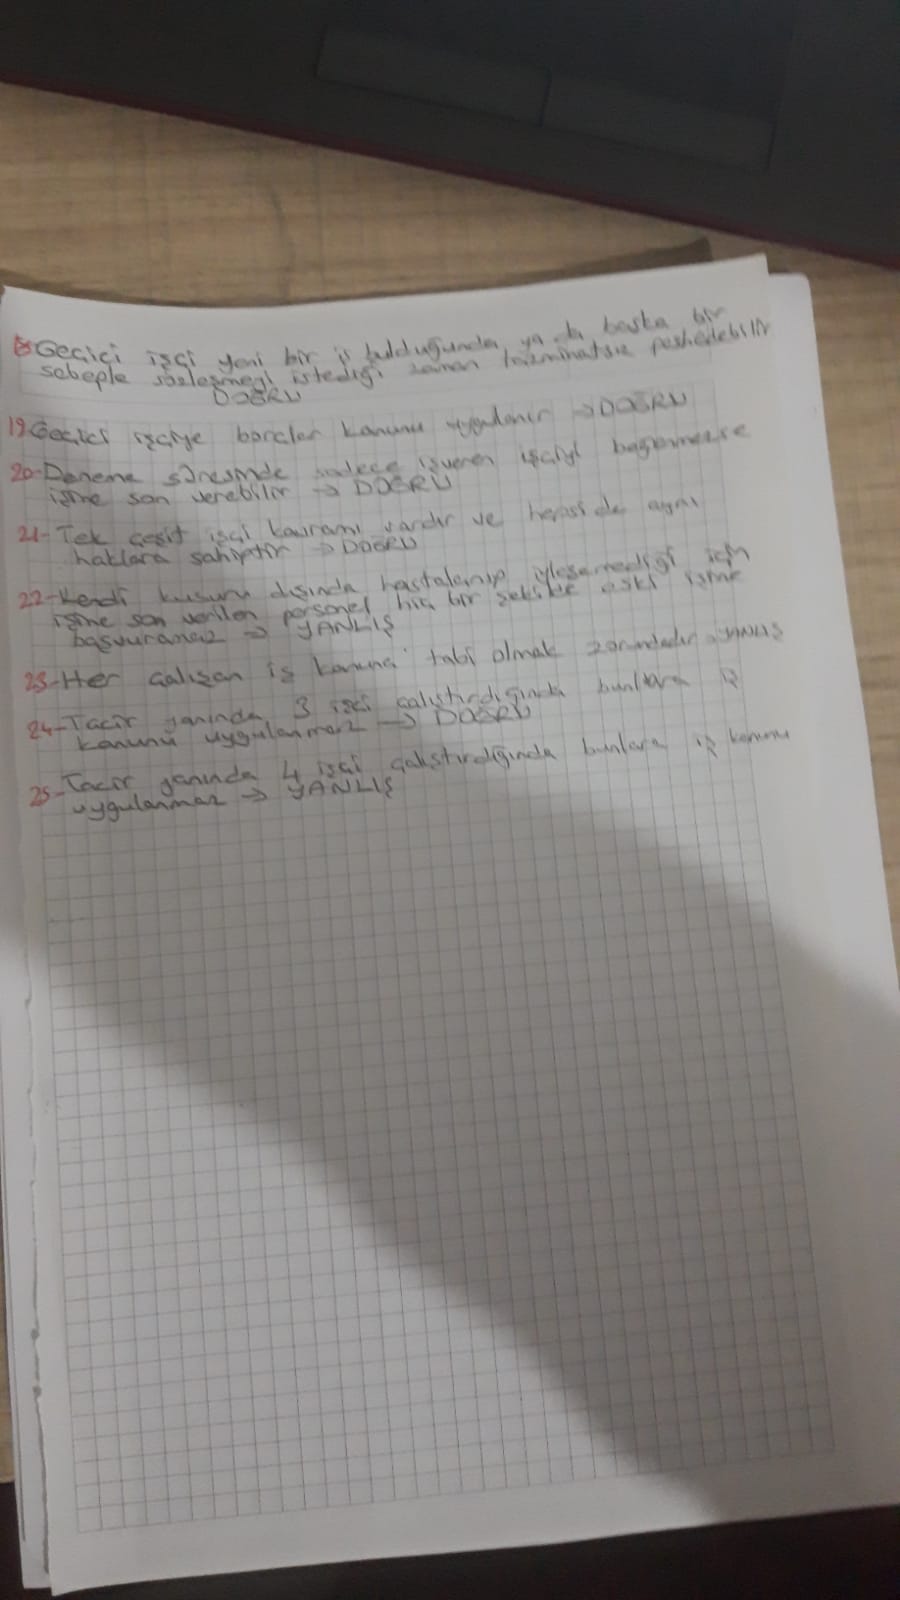 18-Geçici işçi yeni bir iş bulduğunda ya da başka bir
sebeple sözleşmeyi istediği zaman tazminatsız feshedebilir
DOĞRU
19-Geçici işçiye borçlar kanunu uygulanır → DOĞRU
20-Deneme süresinde sadece işveren işçiyi beğenmezse
işine son verebilir → DOĞRU
21-Tek çeşit işçi kavramı vardır ve hepsi de aynı
haklara sahiptir → DOĞRU
22-Kendi kusuru dışında hastalanıp iyileşemediği için
işine son verilen personel hiç bir şekilde eski işine
başvuramaz → YANLIŞ
23-Her çalışan iş kanuna tabi olmak zorundadır → YANLIŞ
24-Tacir yanında 3 işçi çalıştırdığında bunlara iş
kanunu uygulanmaz → DOĞRU
25-Tacir yanında 4 işçi çalıştırdığında bunlara iş kanunu
uygulanmaz → YANLIŞ